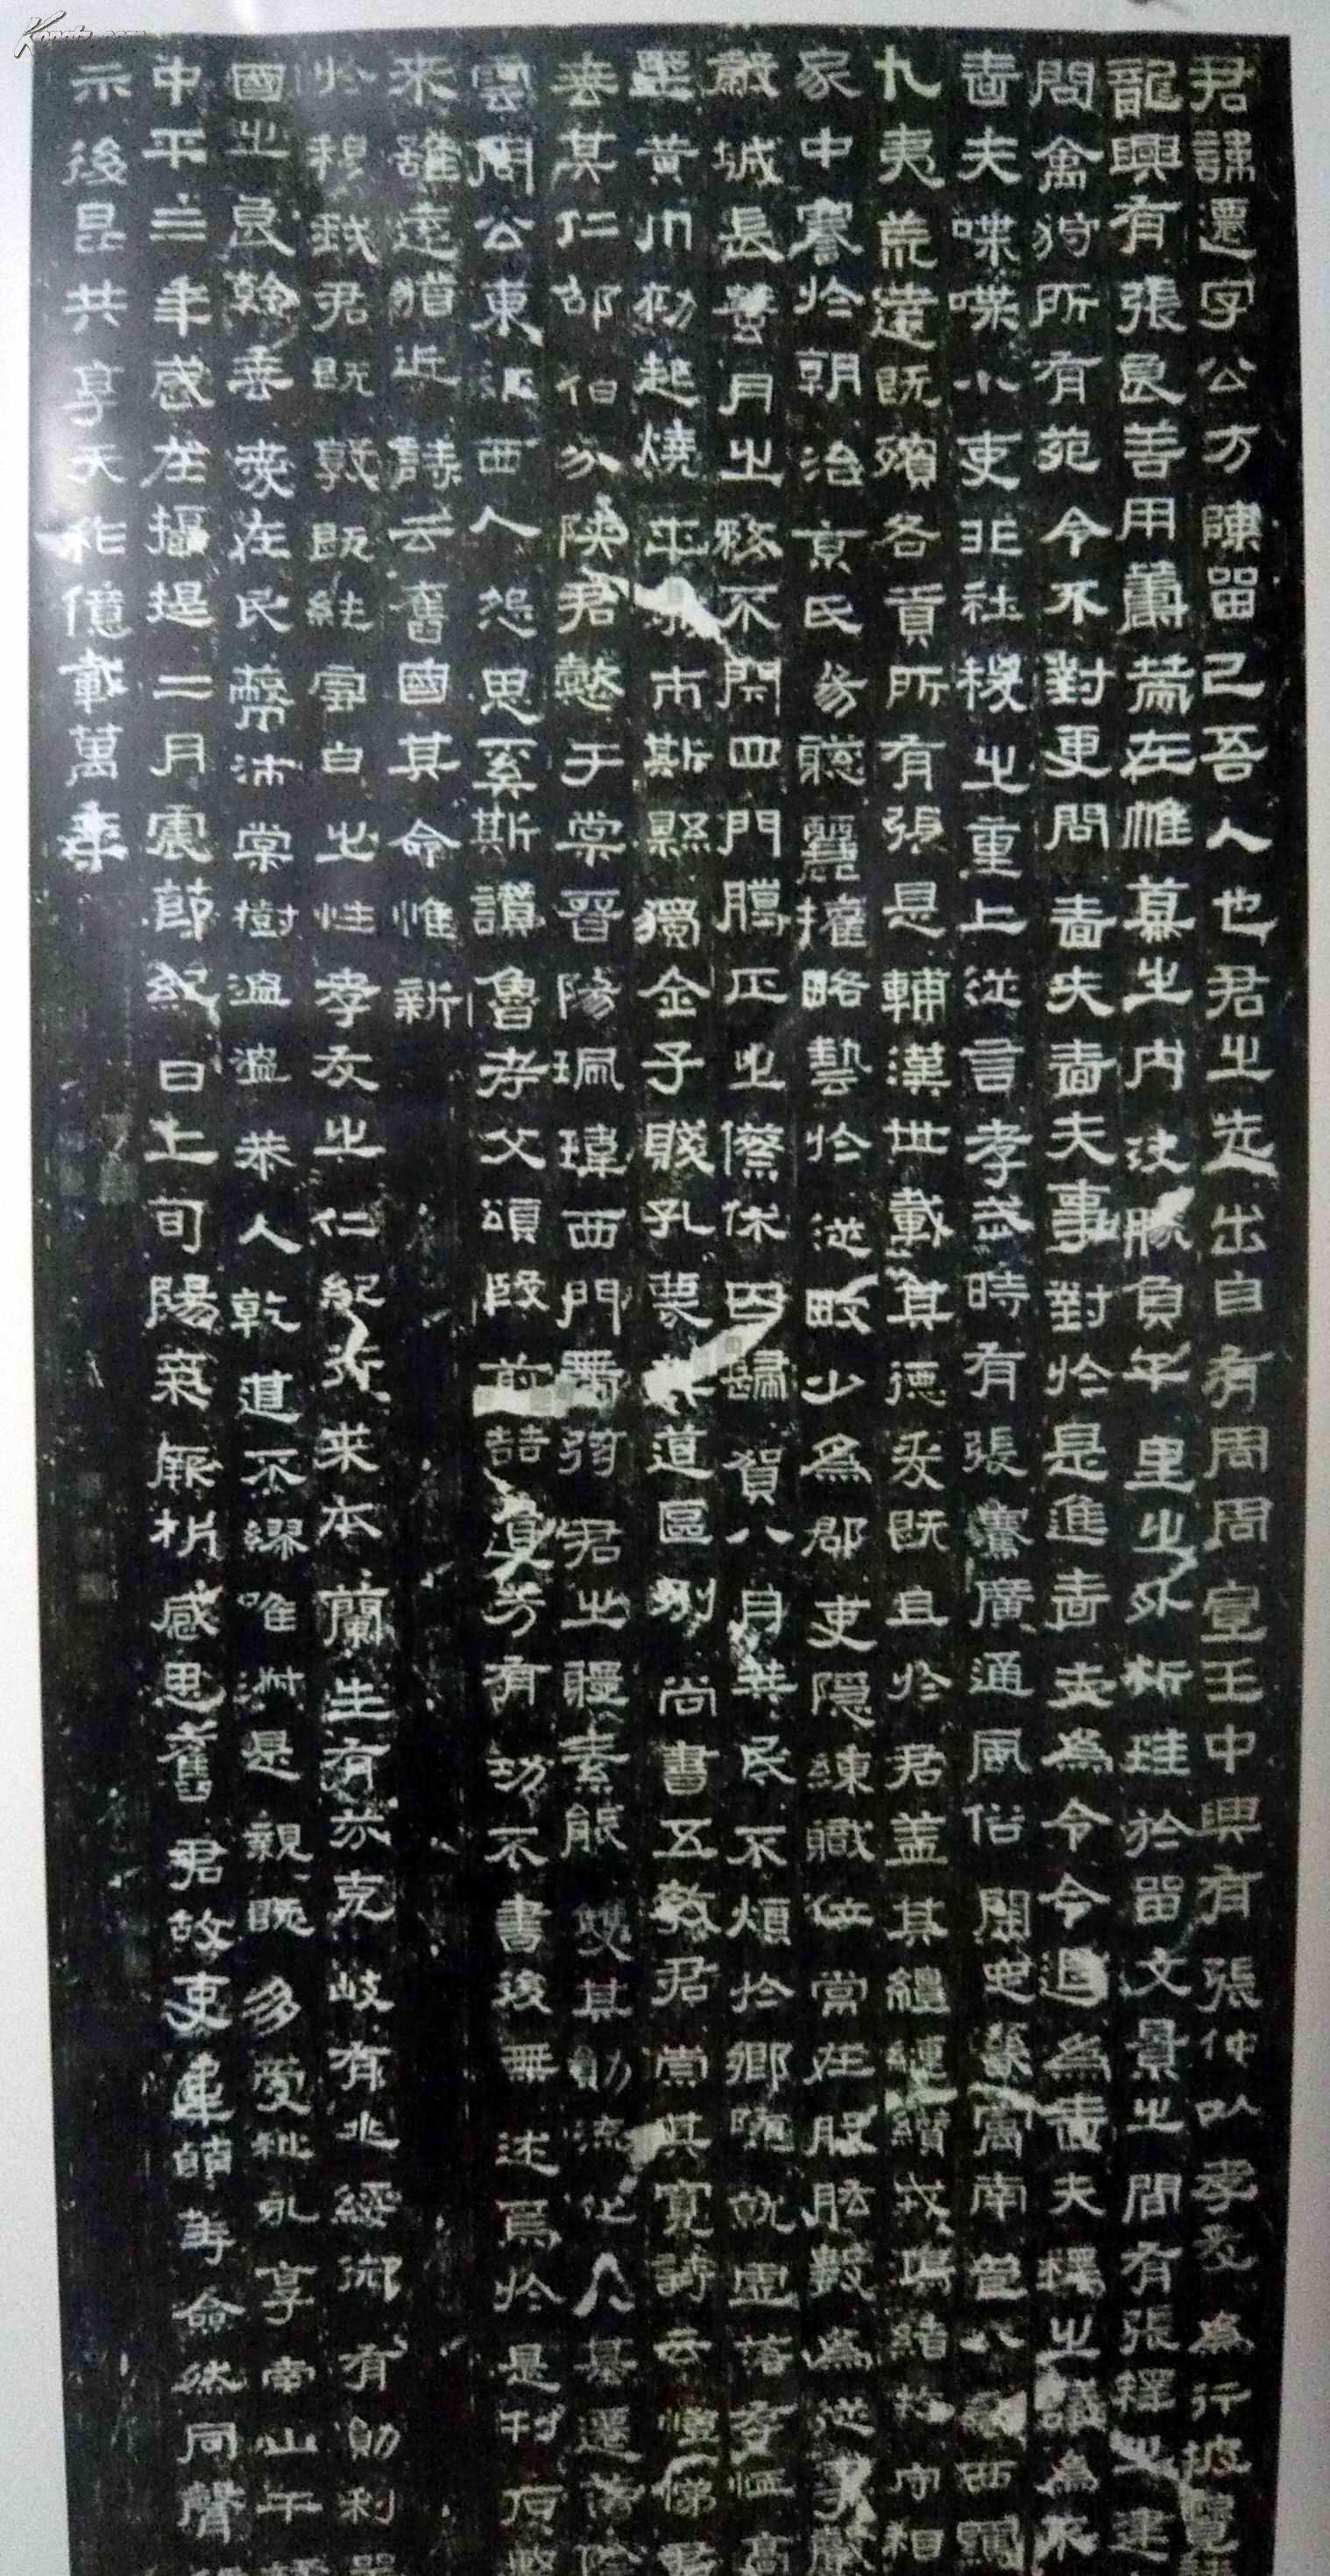 君諱遷字公方陳留己吾人也君之先出自有周周宣王中興有張仲以孝友為行披覽
龍興有張良善用籌策在帷幕之內決勝負千里之外析珪於留文景之間有張釋之建
問禽狩所有苑令不對更問嗇夫嗇夫事對於是進嗇夫為令令退為嗇夫釋之議為不
嗇夫喋喋小吏非社稷之重上從言孝武時有張騫廣通風俗開定畿寓南苞八蠻西羈
九夷荒遠既殯各貢所有張是輔漢世載其德爰既且於君蓋其繵縺纘戎鴻緒牧守相
家中謇於朝治京氏易聰麗權略藝於從畋少為郡吏隱練職位常在股肱數為從事聲
穀城長蠶月之務不閉四門臘正之僚休囚歸賀八月筭民不煩於鄉隨就虛落存恤高
野黃巾初起燒平城市斯縣獨全子賤孔蔑其道區別尚書五教君崇其寬詩云愷悌君
垂其仁邵伯分陝君懿于棠晉陽珮瑋西門帶弦君之體素能雙其勛流化八基遷蕩陰
雲周公東征西人怨思奚斯讚魯考父頌殷前喆遺芳有功不書後無述焉於是刊石豎
來雖遠猶近詩云舊國其命惟新
於穆我君既敦既純雪白之性孝友之仁紀行來本蘭生有芬克岐有兆綏御有勛利器
國之良幹垂愛在民蔽沛棠樹溫溫恭人乾道不繆唯淑是親既多受祉永享南山干祿
中平三年歲在攝提二月震節紀日上旬陽氣厥析感思舊君故吏韋萌等僉然同聲
示後昆共享天祚億載萬年